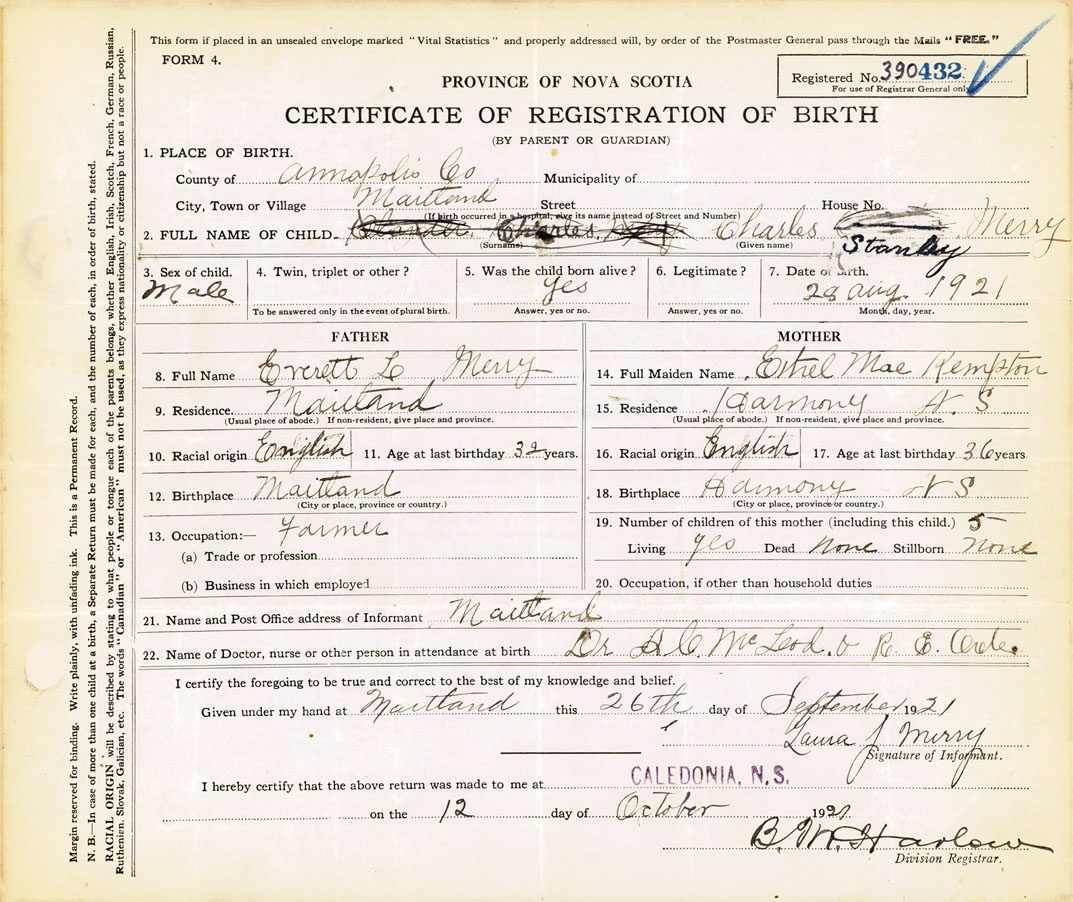 This form if placed in an unsealed envelope marked "Vital Statistics" and properly addressed will, by order of the Postmaster General pass through the Mails "FREE."
FORM 4.
PROVINCE OF NOVA SCOTIA
Registered No. 390432
For use of Registrar General only
CERTIFICATE OF REGISTRATION OF BIRTH
(BY PARENT OR GUARDIAN)
1. PLACE OF BIRTH.
County of Annapolis Co Municipality of
City, Town or Village Maitland Street House No.
(If birth occurred in a hospital, give its name instead of Street and Number)
2. FULL NAME OF CHILD. Charles, Charles Merry
Stanley
(Surname) (Given name)
3. Sex of child. 4. Twin, triplet or other? 5. Was the child born alive? 6. Legitimate? 7. Date of birth.
Male Yes 28 Aug. 1921
To be answered only in the event of plural birth. Answer, yes or no. Answer, yes or no. Month, day, year.
FATHER
8. Full Name Everett L Merry
9. Residence. Maitland
(Usual place of abode.) If non-resident, give place and province.
10. Racial origin English 11. Age at last birthday 32 years.
12. Birthplace Maitland
(City or place, province or country.)
13. Occupation:— Farmer
(a) Trade or profession
(b) Business in which employed
MOTHER
14. Full Maiden Name Ethel Mae Kempton
15. Residence Harmony N. S
(Usual place of abode.) If non-resident, give place and province.
16. Racial origin English 17. Age at last birthday 36 years
18. Birthplace Harmony N S
(City or place, province or country.)
19. Number of children of this mother (including this child.) 5
Living yes Dead None Stillborn None
20. Occupation, if other than household duties
21. Name and Post Office address of Informant Maitland
22. Name of Doctor, nurse or other person in attendance at birth Dr H. C. McLeod. R. E.
I certify the foregoing to be true and correct to the best of my knowledge and belief.
Given under my hand at Maitland this 26th day of September 1921
Laura J Merry
Signature of Informant.
I hereby certify that the above return was made to me at CALEDONIA, N.S.
on the 12 day of October 1921.
B. M. Harlow
Division Registrar.
Margin reserved for binding. Write plainly, with unfading ink. This is a Permanent Record.
N. B.—In case of more than one child at a birth, a Separate Return must be made for each, and the number of each, in order of birth, stated.
RACIAL ORIGIN will be described by stating to what people or tongue each of the parents belongs, whether English, Irish, Scotch, French, German, Russian,
Ruthenian, Slovak, Galician, etc. The words "Canadian" or "American" must not be used, as they express nationality or citizenship but not a race or people.